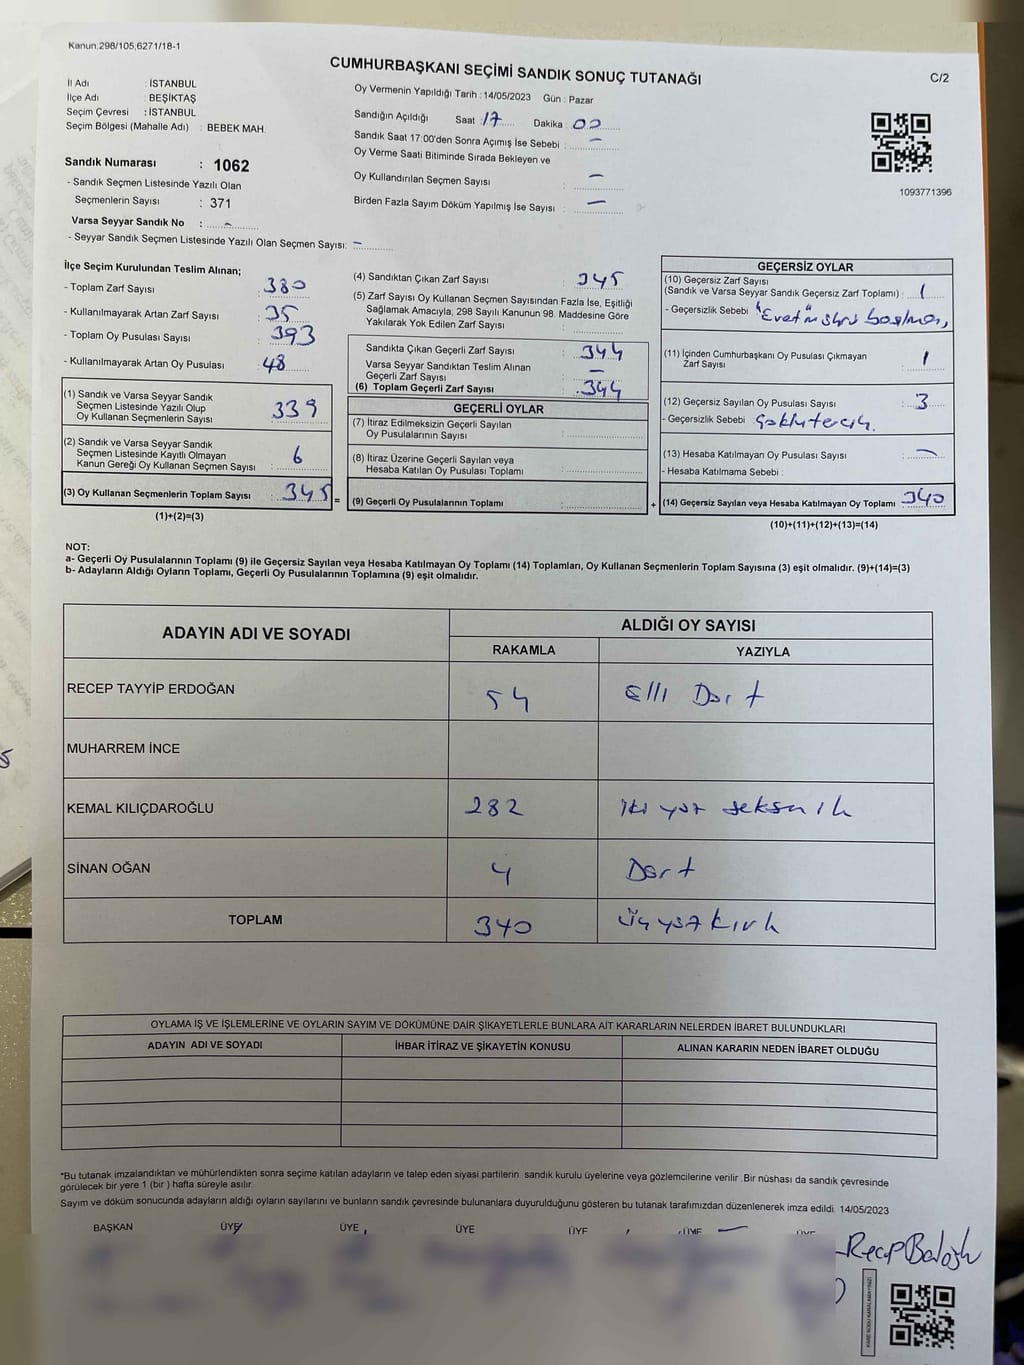 Kanun:298/105;6271/18-1
CUMHURBAŞKANI SEÇİMİ SANDIK SONUÇ TUTANAĞI
C/2
İl Adı : İSTANBUL
İlçe Adı : BEŞİKTAŞ
Seçim Çevresi : İSTANBUL
Seçim Bölgesi (Mahalle Adı) : BEBEK MAH.
Oy Vermenin Yapıldığı Tarih : 14/05/2023 Gün : Pazar
Sandığın Açıldığı Saat : 17 Dakika : 00
Sandık Saat 17:00'den Sonra Açımış İse Sebebi : –
Oy Verme Saati Bitiminde Sırada Bekleyen ve
Oy Kullandırılan Seçmen Sayısı : –
Birden Fazla Sayım Döküm Yapılmış İse Sayısı : –
1093771396
Sandık Numarası : 1062
- Sandık Seçmen Listesinde Yazılı Olan
Seçmenlerin Sayısı : 371
Varsa Seyyar Sandık No : –
- Seyyar Sandık Seçmen Listesinde Yazılı Olan Seçmen Sayısı: –
İlçe Seçim Kurulundan Teslim Alınan;
- Toplam Zarf Sayısı : 380
- Kullanılmayarak Artan Zarf Sayısı : 35
- Toplam Oy Pusulası Sayısı : 393
- Kullanılmayarak Artan Oy Pusulası : 48
(1) Sandık ve Varsa Seyyar Sandık
Seçmen Listesinde Yazılı Olup
Oy Kullanan Seçmenlerin Sayısı : 339
(2) Sandık ve Varsa Seyyar Sandık
Seçmen Listesinde Kayıtlı Olmayan
Kanun Gereği Oy Kullanan Seçmen Sayısı : 6
(3) Oy Kullanan Seçmenlerin Toplam Sayısı : 345 =
(1)+(2)=(3)
(4) Sandıktan Çıkan Zarf Sayısı : 345
(5) Zarf Sayısı Oy Kullanan Seçmen Sayısından Fazla İse, Eşitliği
Sağlamak Amacıyla; 298 Sayılı Kanunun 98. Maddesine Göre
Yakılarak Yok Edilen Zarf Sayısı :
Sandıkta Çıkan Geçerli Zarf Sayısı : 344
Varsa Seyyar Sandıktan Teslim Alınan
Geçerli Zarf Sayısı : –
(6) Toplam Geçerli Zarf Sayısı : 344
GEÇERLİ OYLAR
(7) İtiraz Edilmeksizin Geçerli Sayılan
Oy Pusulalarının Sayısı :
(8) İtiraz Üzerine Geçerli Sayılan veya
Hesaba Katılan Oy Pusulası Toplamı :
(9) Geçerli Oy Pusulalarının Toplamı : +
GEÇERSİZ OYLAR
(10) Geçersiz Zarf Sayısı
(Sandık ve Varsa Seyyar Sandık Geçersiz Zarf Toplamı) : 1
- Geçersizlik Sebebi : "Evet" mührü basılması
(11) İçinden Cumhurbaşkanı Oy Pusulası Çıkmayan
Zarf Sayısı : 1
(12) Geçersiz Sayılan Oy Pusulası Sayısı : 3
- Geçersizlik Sebebi : Çoklu tercih.
(13) Hesaba Katılmayan Oy Pusulası Sayısı : –
- Hesaba Katılmama Sebebi :
(14) Geçersiz Sayılan veya Hesaba Katılmayan Oy Toplamı : 340
(10)+(11)+(12)+(13)=(14)
NOT:
a- Geçerli Oy Pusulalarının Toplamı (9) ile Geçersiz Sayılan veya Hesaba Katılmayan Oy Toplamı (14) Toplamları, Oy Kullanan Seçmenlerin Toplam Sayısına (3) eşit olmalıdır. (9)+(14)=(3)
b- Adayların Aldığı Oyların Toplamı, Geçerli Oy Pusulalarının Toplamına (9) eşit olmalıdır.
ADAYIN ADI VE SOYADI
ALDIĞI OY SAYISI
RAKAMLA YAZIYLA
RECEP TAYYİP ERDOĞAN 54 Elli Dört
MUHARREM İNCE
KEMAL KILIÇDAROĞLU 282 iki yüz seksen iki
SİNAN OĞAN 4 Dört
TOPLAM 340 Üç yüz kırk
OYLAMA İŞ VE İŞLEMLERİNE VE OYLARIN SAYIM VE DÖKÜMÜNE DAİR ŞİKAYETLERLE BUNLARA AİT KARARLARIN NELERDEN İBARET BULUNDUKLARI
ADAYIN ADI VE SOYADI İHBAR İTİRAZ VE ŞİKAYETİN KONUSU ALINAN KARARIN NEDEN İBARET OLDUĞU
*Bu tutanak imzalandıktan ve mühürlendikten sonra seçime katılan adayların ve talep eden siyasi partilerin sandık kurulu üyelerine veya gözlemcilerine verilir .Bir nüshası da sandık çevresinde
görülecek bir yere 1 (bir ) hafta süreyle asılır.
Sayım ve döküm sonucunda adayların aldığı oyların sayılarını ve bunların sandık çevresinde bulunanlara duyurulduğunu gösteren bu tutanak tarafımızdan düzenlenerek imza edildi. 14/05/2023
BAŞKAN ÜYE ÜYE ÜYE ÜYE ÜYE ÜYE
Recep